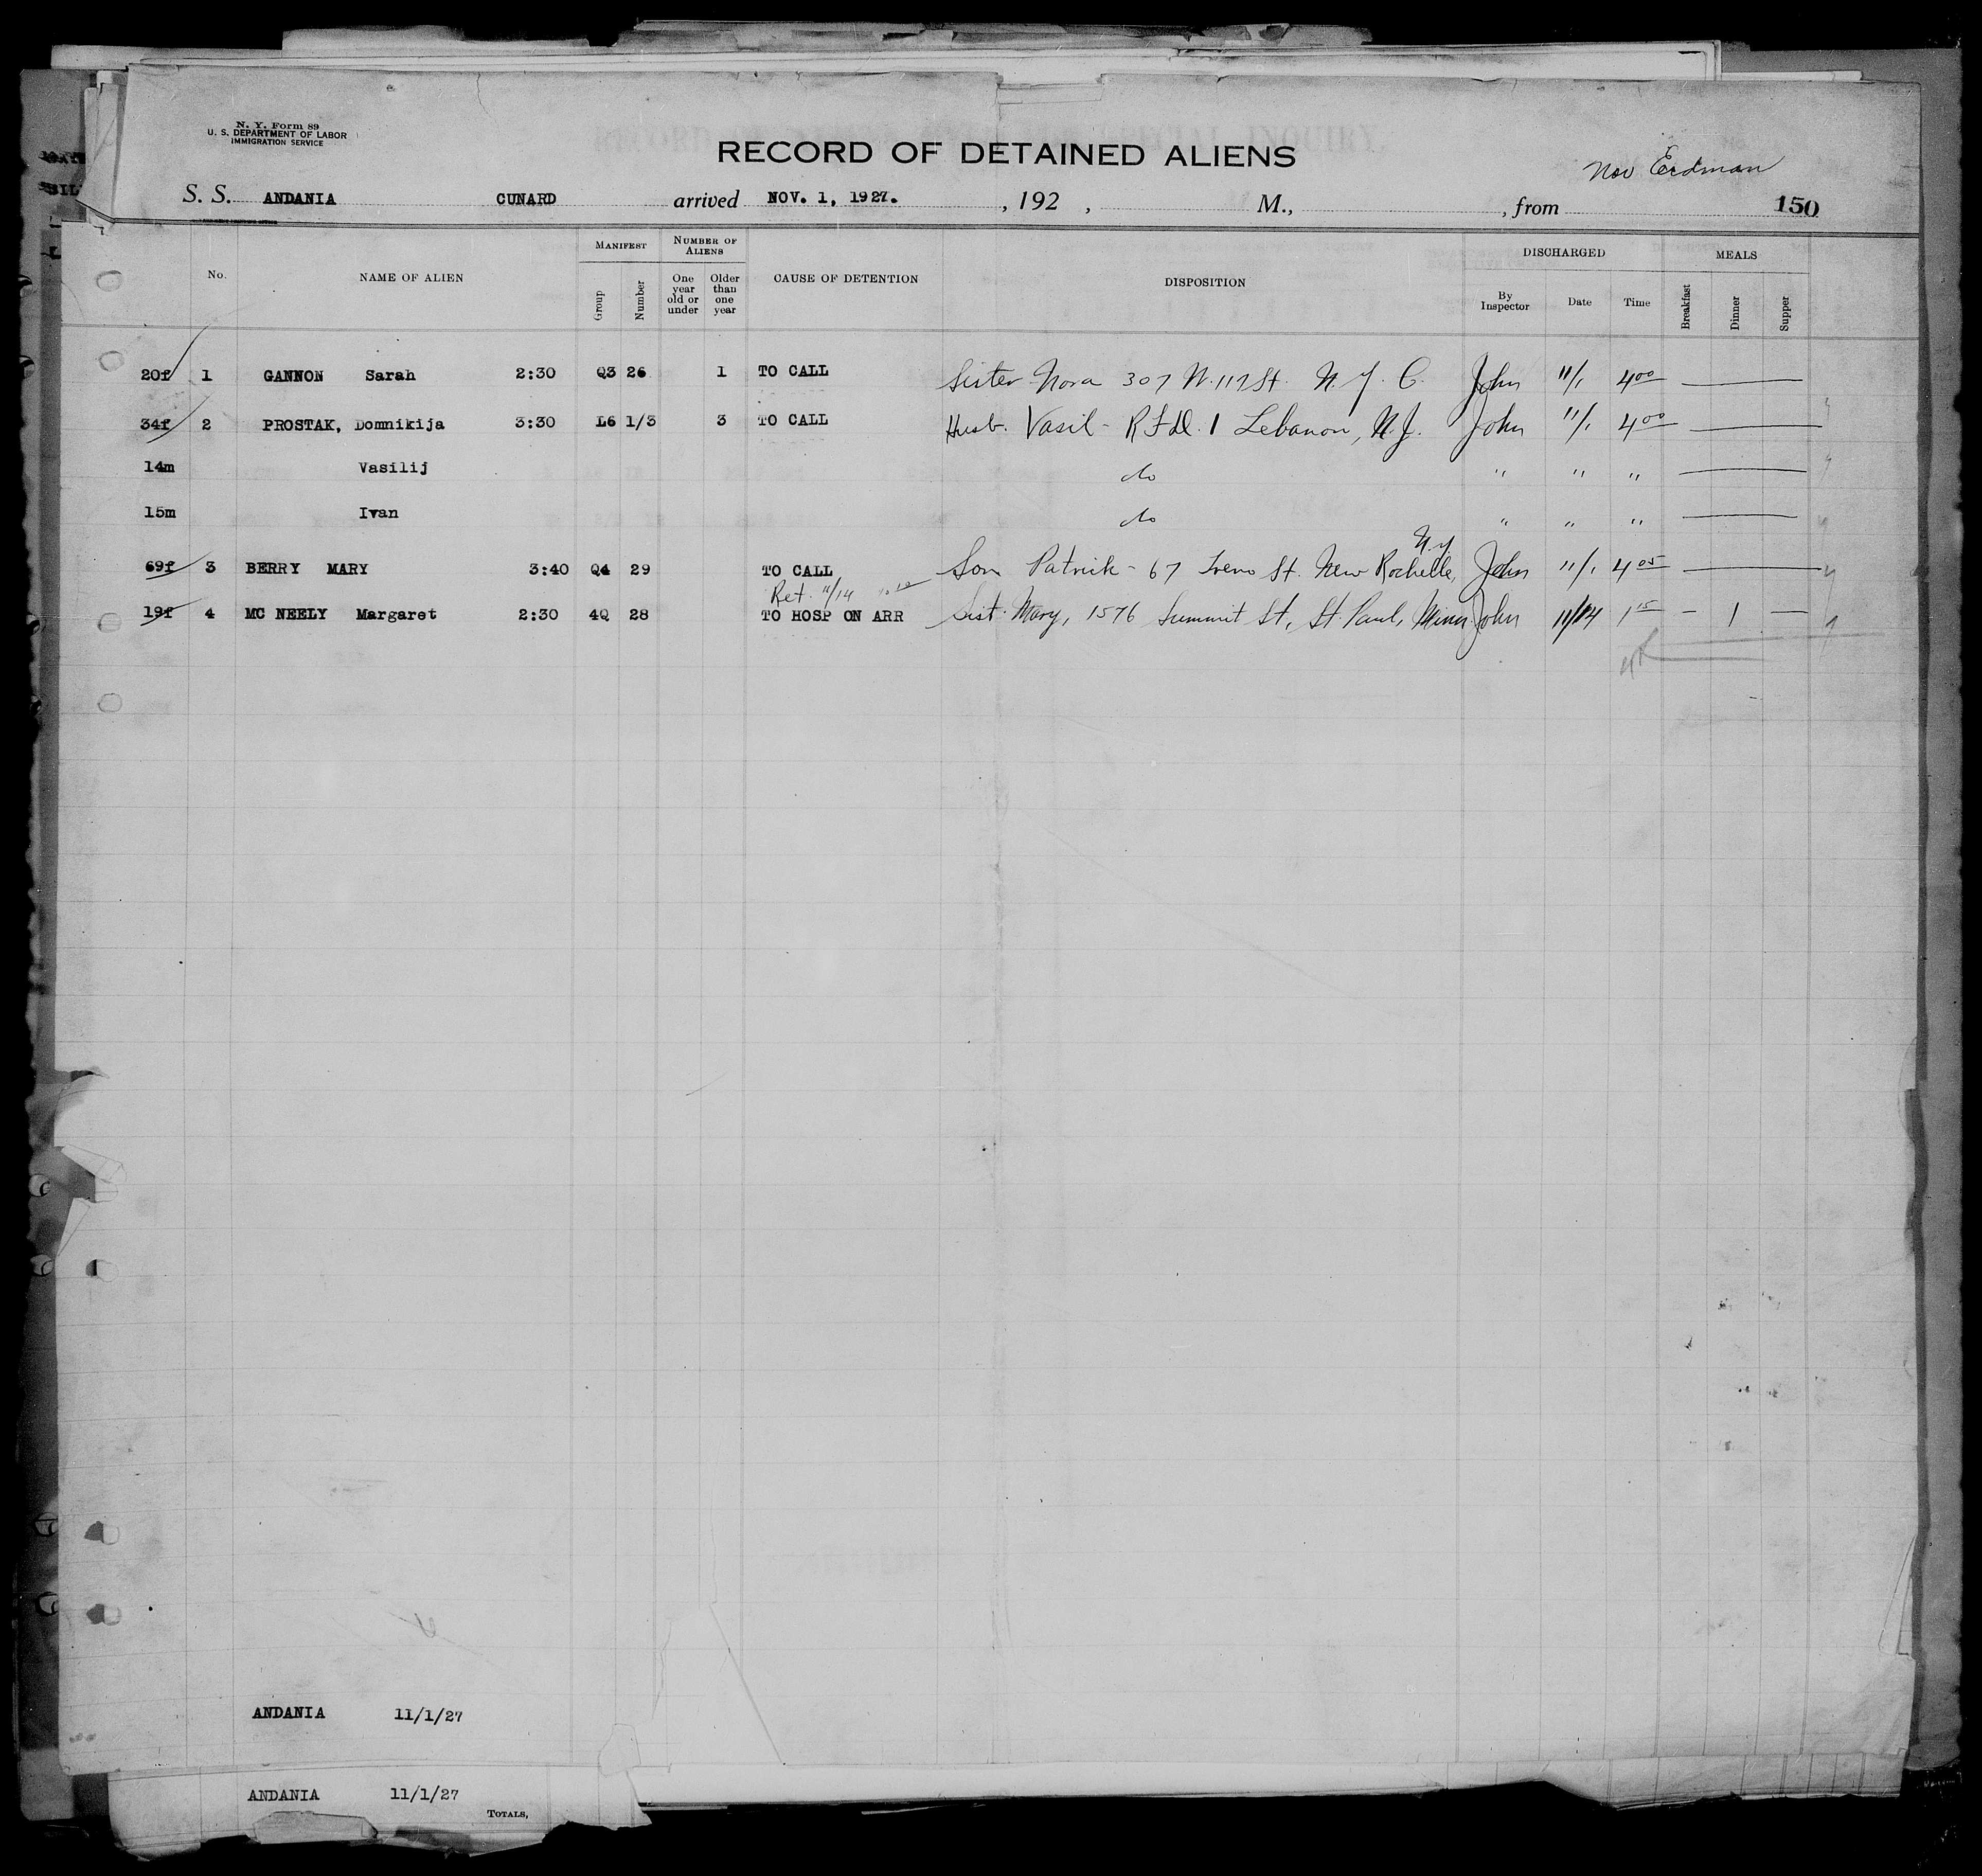 N. Y. Form 89
U. S. DEPARTMENT OF LABOR
IMMIGRATION SERVICE
RECORD OF DETAINED ALIENS
Nov Erdman
S. S. ANDANIA CUNARD arrived NOV. 1, 1927. , 192 , M., , from 150
No. NAME OF ALIEN MANIFEST Group Number NUMBER OF ALIENS One year old or under Older than one year CAUSE OF DETENTION DISPOSITION DISCHARGED By Inspector Date Time MEALS Breakfast Dinner Supper
20f 1 GANNON Sarah 2:30 Q3 26 1 TO CALL Sister Nora 307 W. 117 St. N. Y. C. John 11/1 4 00
34f 2 PROSTAK, Domnikija 3:30 L6 1/3 3 TO CALL Husb. Vasil - R F D. 1 Lebanon, N.J. John 11/1 4 00
14m Vasilij do " " "
15m Ivan do " " "
69f 3 BERRY MARY 3:40 Q4 29 TO CALL Son Patrick - 67 St. New Rochelle, N.Y. John 11/1 4 05
Ret. 11/14
19f 4 MC NEELY Margaret 2:30 4Q 28 TO HOSP ON ARR Sist. Mary, 1576 Summit St, St. Paul, Minn John 11/14 1 15 - 1 -
ANDANIA 11/1/27
ANDANIA 11/1/27
TOTALS,